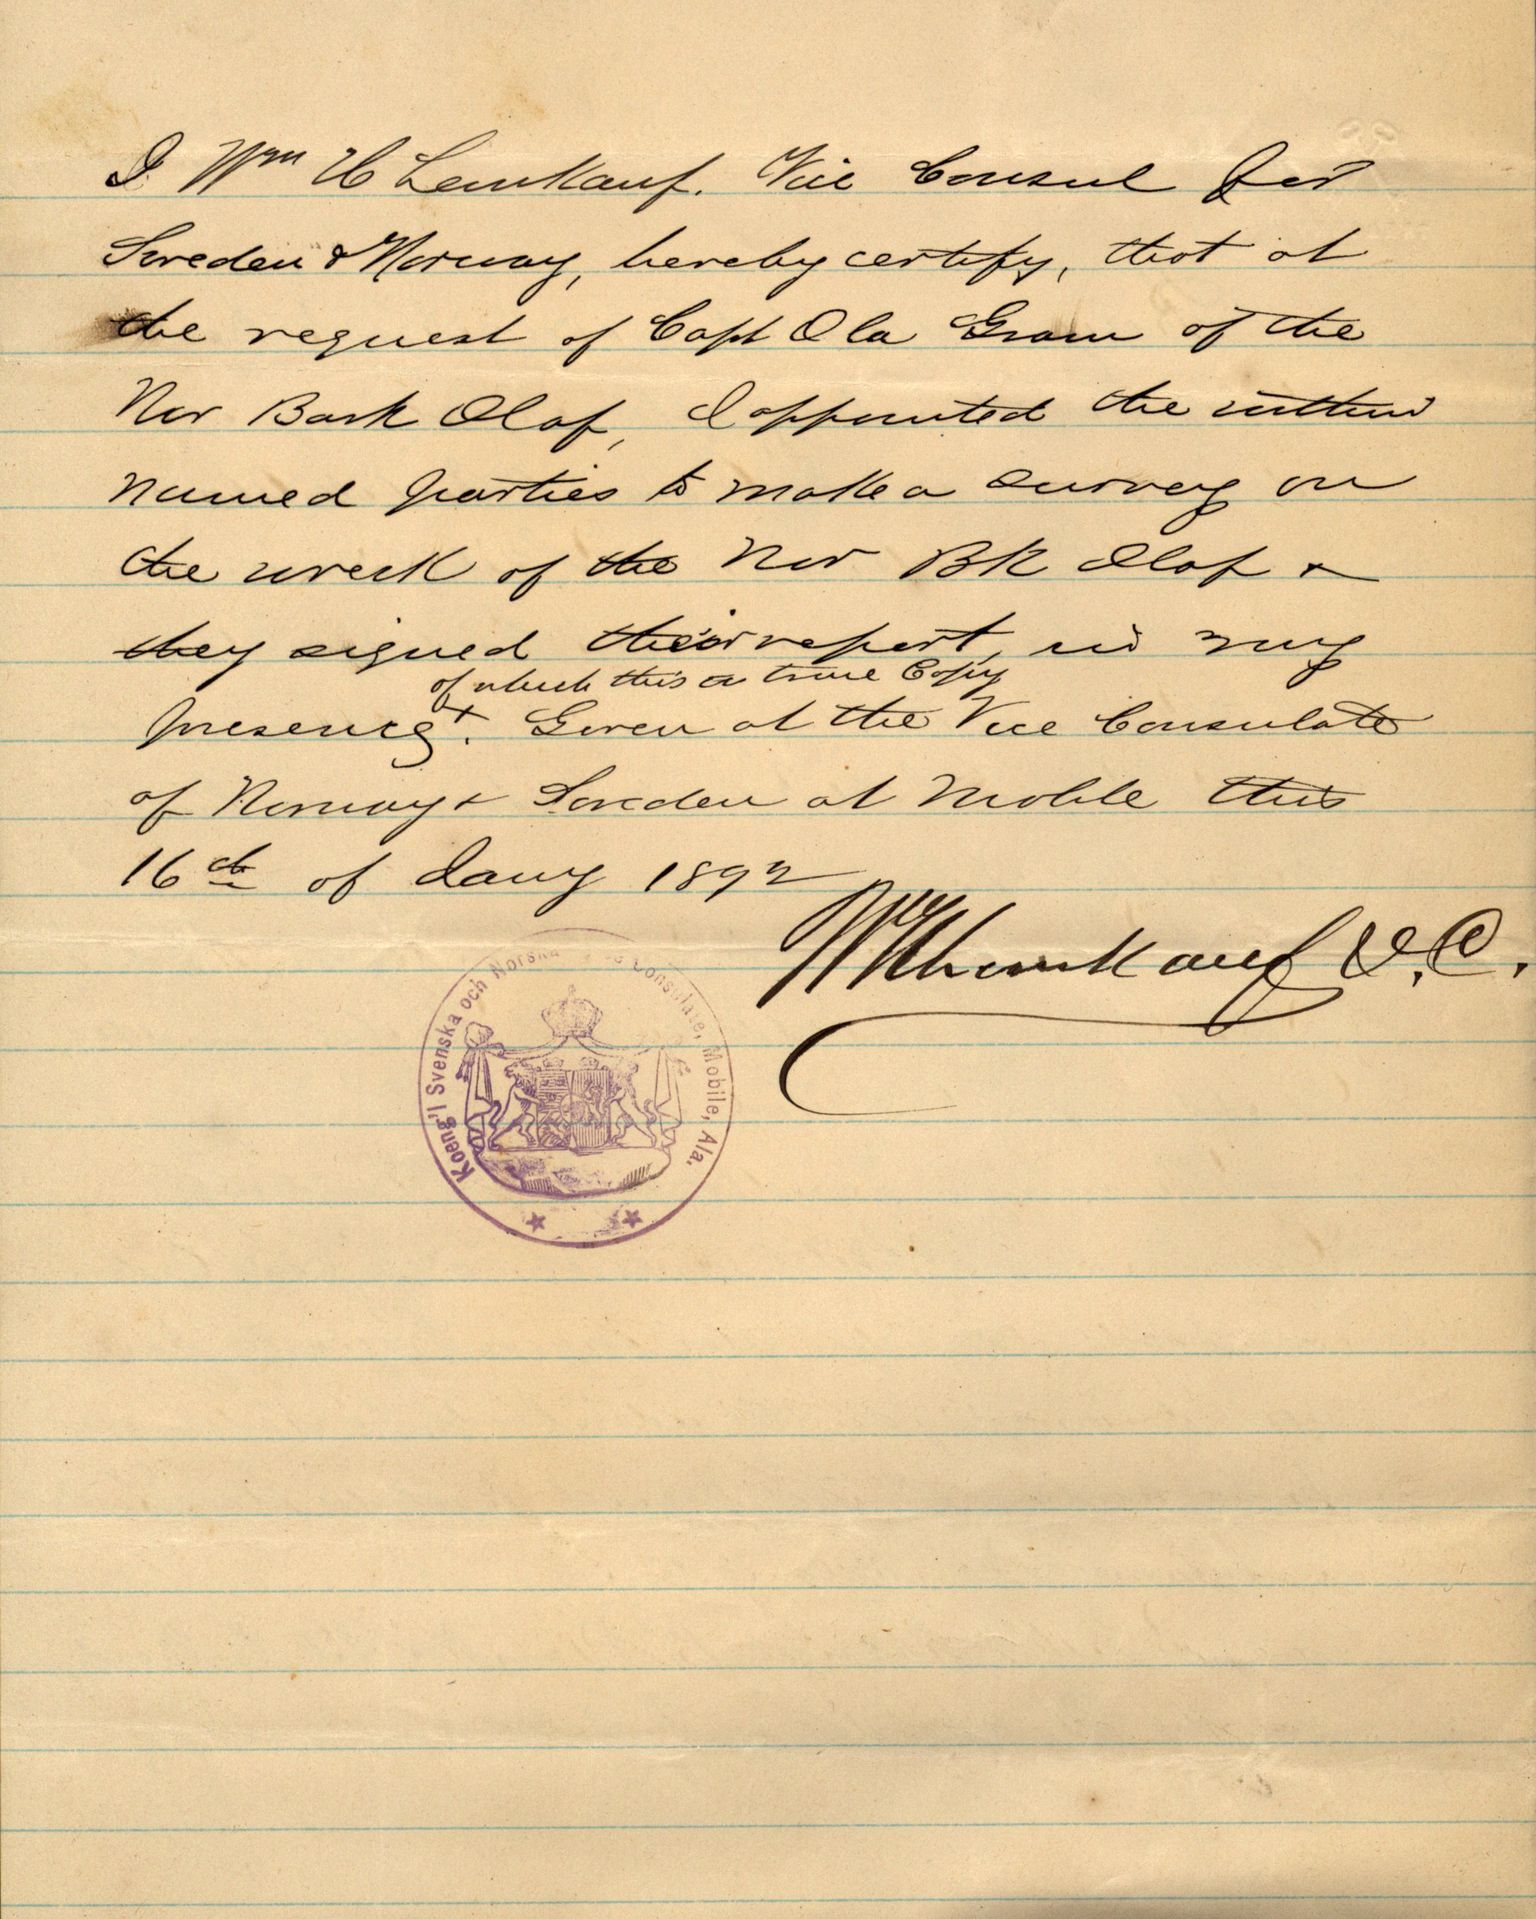 I Wm H Leinkauf. Vice Consul for
Sweden & Norway, hereby certify, that at
the request of Capt Ola Gram of the
Nor Bark Olaf, I appointed the within
named parties to make a survey on
the wreck of the Nor Bk Olaf &
they signed their report, in my
of which this a true Copy
presence +. Given at the Vice Consulate
of Norway & Sweden at Mobile this
16th of Jany 1892
WHLeinkauf V.C.
Koeng'l Svenska och Norska Consulate, Mobile, Ala.